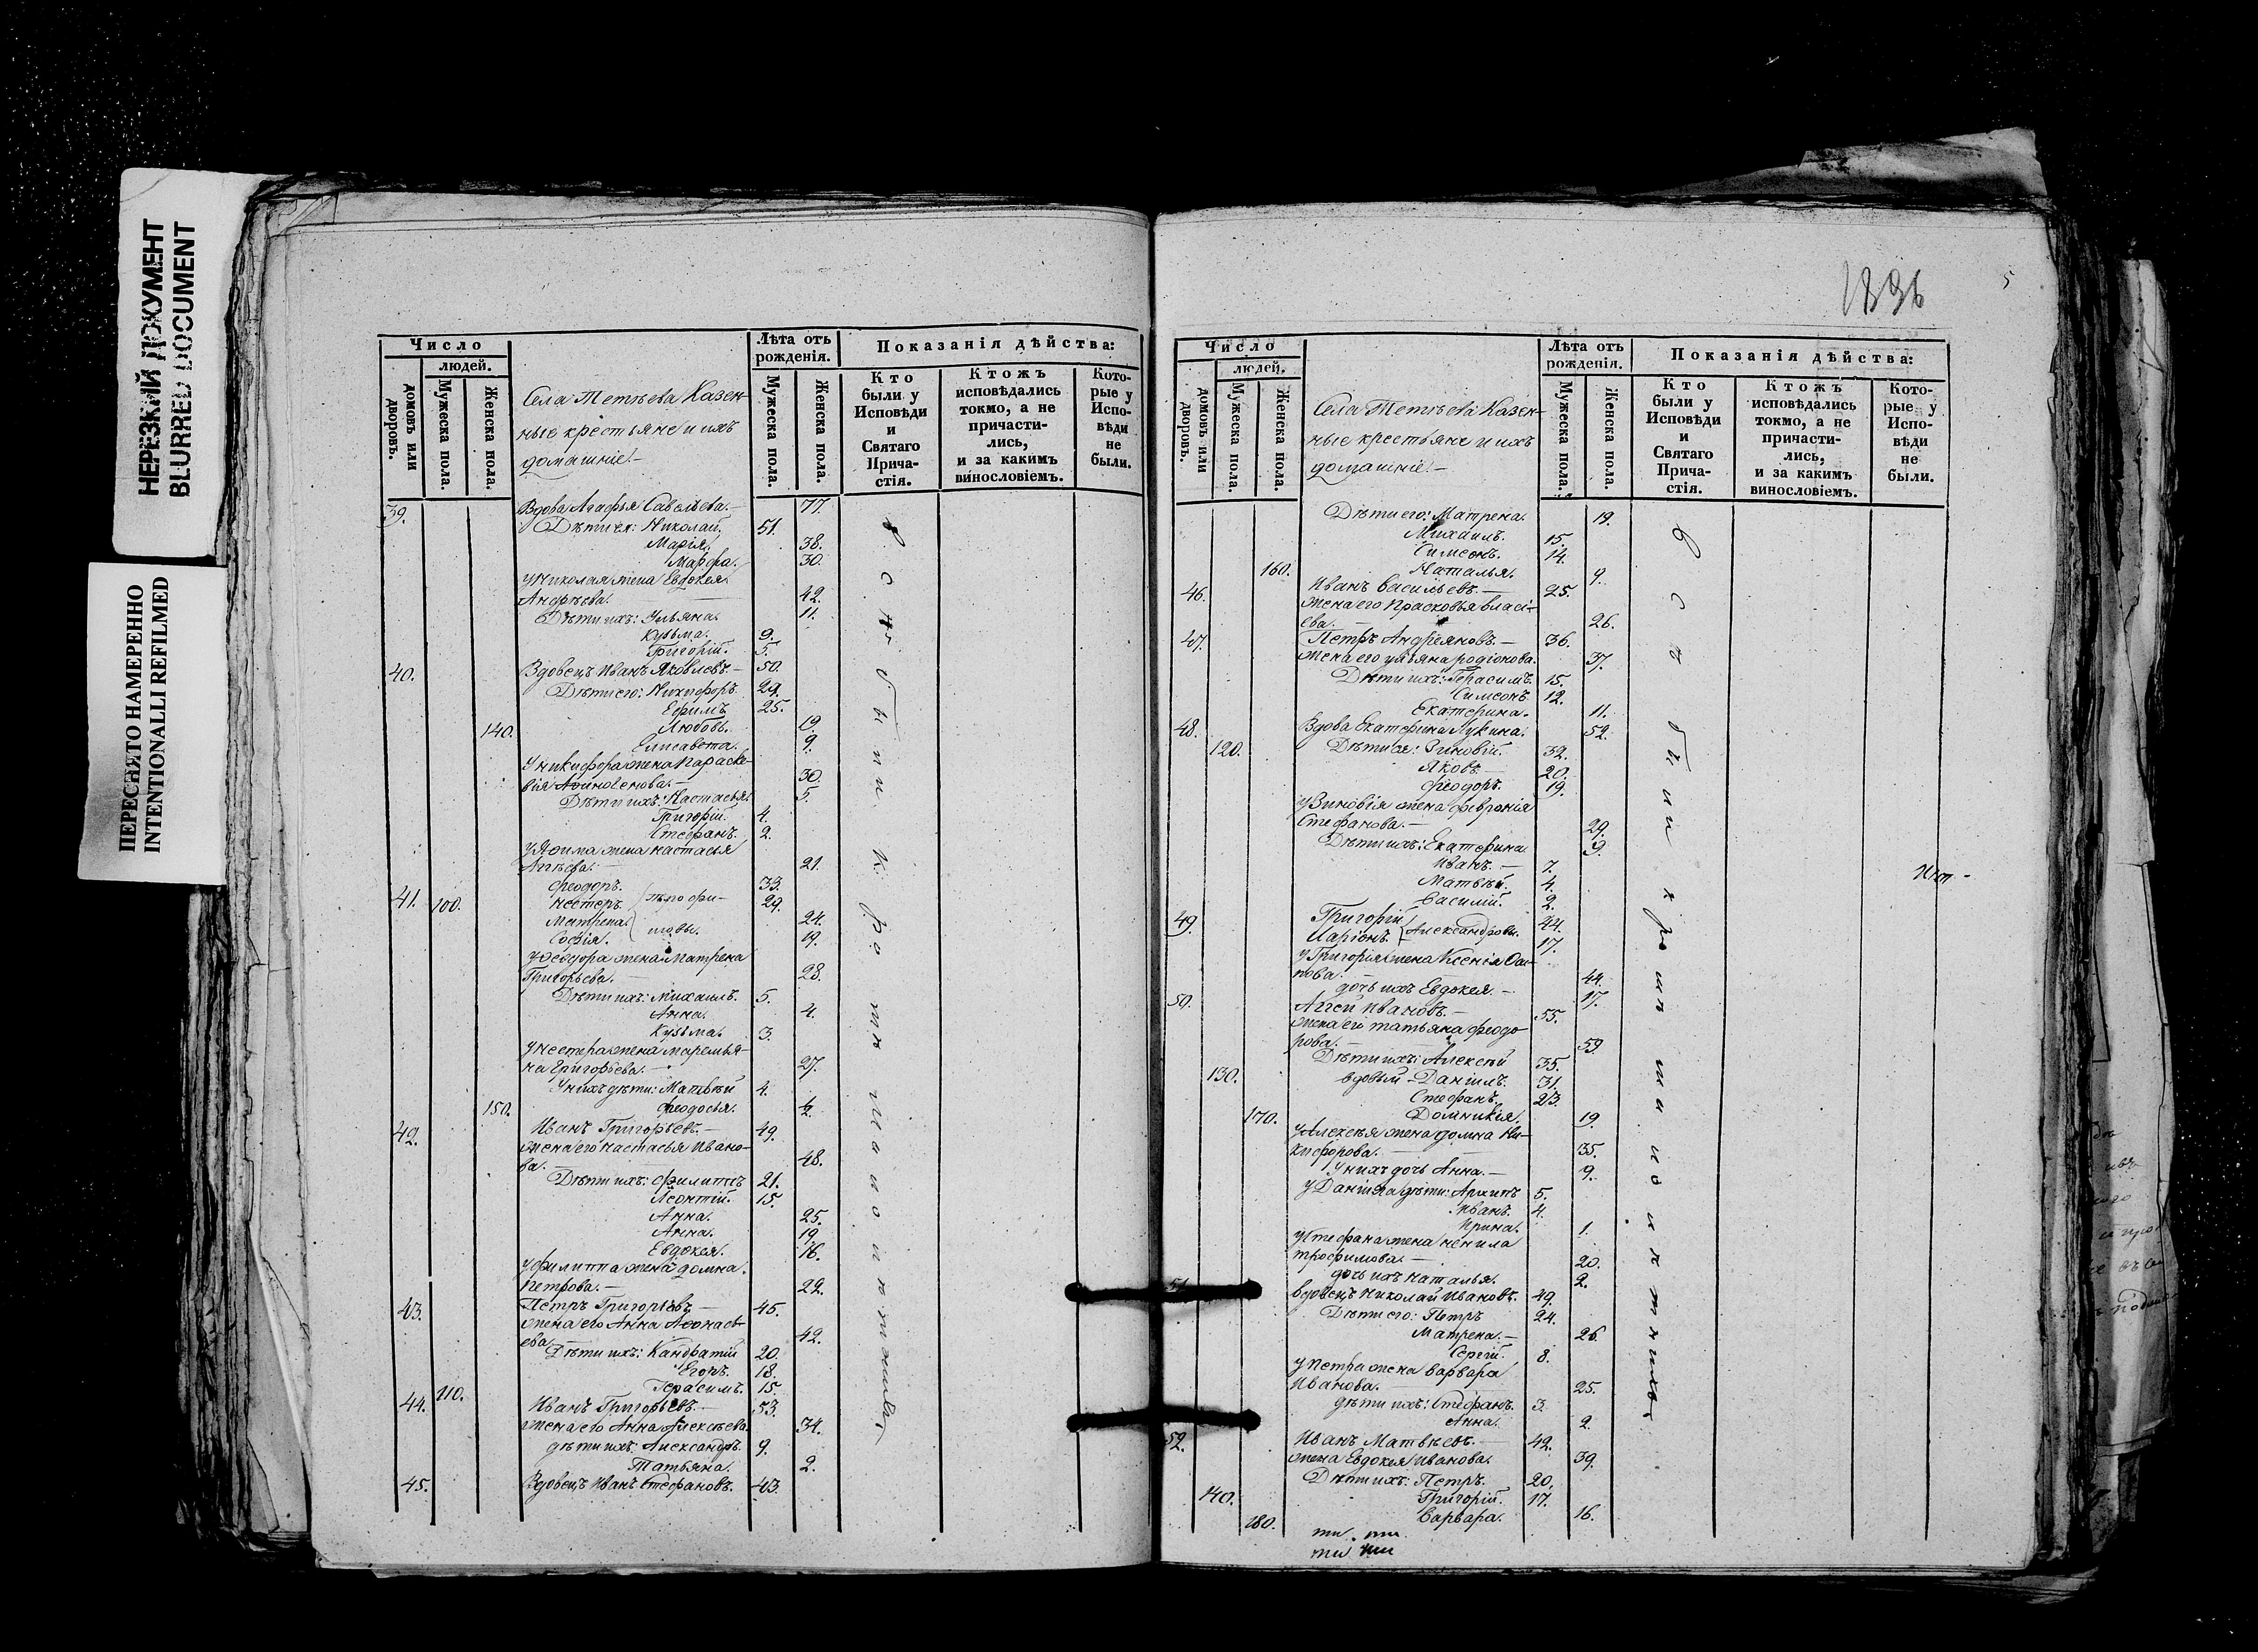 НЕРЕЗКИЙ ДОКУМЕНТ
BLURRED DOCUMENT
ПЕРЕСНЯТО НАМЕРЕННО
INTENTIONALLI REFILMED
Число
людей.
домовъ или дворовъ.
Мужеска пола.
Женска пола.
Села Тетѣева Казен-
ные крестьяне и ихъ
домашнiе:-
Лѣта отъ рожденiя.
Мужеска пола.
Женска пола.
Показанiя дѣйства:
Кто были у Исповѣди и Святаго Прича-стiя.
Ктожъ исповѣдались токмо, а не причасти-лись, и за какимъ винословiемъ.
Кото-рые у Испо-вѣди не были.
39. Вдова Агафья Савельева.- 77.
Дѣти ея: Николай. 51.
Марiя. 38.
Марфа. 30.
У Николая жена Евдокея
Андрѣева. 42.
Дѣти ихъ: Ульяна. 11.
Кузьма. 9.
Григорiй. 5.
40. Вдовецъ Иванъ Яковлевъ.- 50.
Дѣти его: Никифоръ. 29.
Ефимъ. 25.
140. Любовь. 19.
Елисавета. 9.
У Никифора жена Параске-
вiя 30.
Дѣти ихъ: Настасья. 5.
Григорiй. 4.
Стефанъ. 2.
жена Настасья
21.
Феодоръ. 33.
41. 100. Нестеръ. 29.
Матрена. 24.
Софiя. 19.
У Феодора жена Матрена
Григорьева.- 28.
Дѣти ихъ: Михаилъ. 5.
Анна. 4.
Кузьма. 3.
У Нестера жена Маремья-
на Григорьева.- 27.
У нихъ дѣти: Матвѣй 4.
150. Феодосья.
42. Иванъ Григорьевъ.- 49.
жена его Настасья Ивано-
ва.- 48.
Дѣти ихъ: Филиппъ 21.
Леонтiй. 15.
Анна. 25.
Анна. 19
Евдокея. 16.
У Филиппа жена Домна
Петрова.- 22.
43. Петръ Григорьевъ.- 45.
жена его Анна Афонась-
ева 42.
Дѣти ихъ: Кандратiй 20.
Егоръ. 18.
Герасимъ. 15.
44. 110. Иванъ Григорьевъ.- 53.
жена его Анна Алексѣева. 34.
дѣти ихъ: Александръ. 9.
Татьяна. 2.
45. Вдовецъ Иванъ Стефановъ. 43.
1836
5
Число
людей.
домовъ или дворовъ.
Мужеска пола.
Женска пола.
Села Тетѣева Казен-
ные крестьяне и ихъ
домашнiе:-
Лѣта отъ рожденiя.
Мужеска пола.
Женска пола.
Показанiя дѣйства:
Кто были у Исповѣди и Святаго Прича-стiя.
Ктожъ исповѣдались токмо, а не причасти-лись, и за какимъ винословiемъ.
Кото-рые у Испо-вѣди не были.
Дѣти его: Матрена. 19.
Михаилъ. 15.
Симеонъ. 14.
160. Наталья. 9.
46. Иванъ Васильевъ.- 25.
жена его Прасковья Власi-
ева.- 26.
47. Петръ Андреяновъ.- 36.
жена его Ульяна Родiонова. 37.
Дѣти ихъ: Герасимъ. 15.
Симеонъ. 12.
Екатерина. 11.
48. Вдова Екатерина Лукина. 52.
120. Дѣти ея: Зиновiй. 32.
Яковъ.- 20.
Феодоръ. 19.
У Зиновiя жена Февронiя
Стефанова.- 29.
Дѣти ихъ: Екатерина 9.
Иванъ.- 7.
Матвѣй. 4.
Василiй. 2.
49. Григорiй 44.
Иларiонъ. Александровы. 17.
У Григорiя жена Ксенiя Оси-
пова.- 44.
дочь ихъ Евдокея.- 17.
50. Аггей Ивановъ.- 55.
жена его Татьяна Феодо-
рова.- 59
Дѣти ихъ: Алексѣй 35.
130. вдовый - Данiилъ. 31.
Стефанъ. 23.
170. Домникiя. 19.
У Алексѣя жена Домна Ни-
кифорова.- 35.
У нихъ дочь Анна.- 9.
У Данiила дѣти: Архипъ 5.
Иванъ. 4.
Ирина. 1.
У Стефана жена Ненила
Трофимова.- 20.
дочь ихъ Наталья. 2.
51. Вдовецъ Николай Ивановъ. 49.
Дѣти его: Петръ 24.
Матрена.- 26
Сергiй. 8.
У Петра жена Варвара
Иванова. 25.
дѣти ихъ: Стефанъ. 3.
Анна. 2.
52. Иванъ Матвѣевъ. 42.
жена Евдокея Иванова. 39.
Дѣти ихъ: Петръ. 20.
140. Григорiй. 17.
180. Варвара. 16.